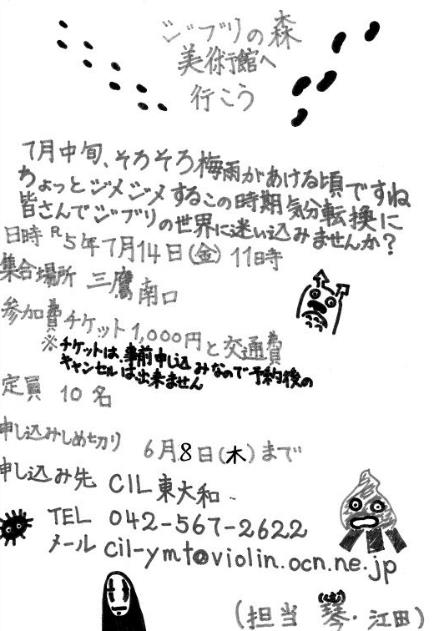 ジブリの森
美術館へ
行こう
7月中旬、そろそろ梅雨があける頃ですね
ちょっとジメジメするこの時期気分転換に
皆さんでジブリの世界に迷い込みませんか?
日時 R5年7月14日(金) 11時
集合場所 三鷹南口
参加費チケット1,000円と交通費
※チケットは、事前申し込みなので予約後の
キャンセルは出来ません
定員 10名
申し込みしめ切り 6月8日(木)まで
申し込み先 CIL東大和
TEL 042-567-2622
メール cil-ymt@violin.ocn.ne.jp
(担当 琴・江田)